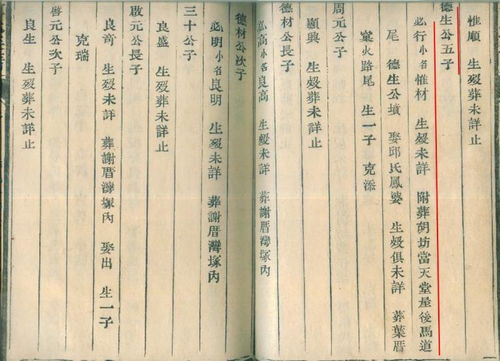 惟順　生歿葬未詳止
德生公五子
必行小名惟材　生歿未詳　附葬荷坊當天堂屋後馬道
尾　德生公墳　娶邱氏鳳婆　生歿俱未詳　葬葉厝
窠火路尾　生一子　克添
周元公子
顯興　生歿葬未詳止
德材公長子
必高小名良高　生歿未詳　葬謝厝灣塚內
德材公次子
必明小名良明　生歿未詳　葬謝厝灣塚內
三十公子
良盛　生歿葬未詳止
啟元公長子
良奇　生歿未詳　葬謝厝灣塚內　娶出　生一子
克瑞
啓元公次子
良生　生歿葬未詳止